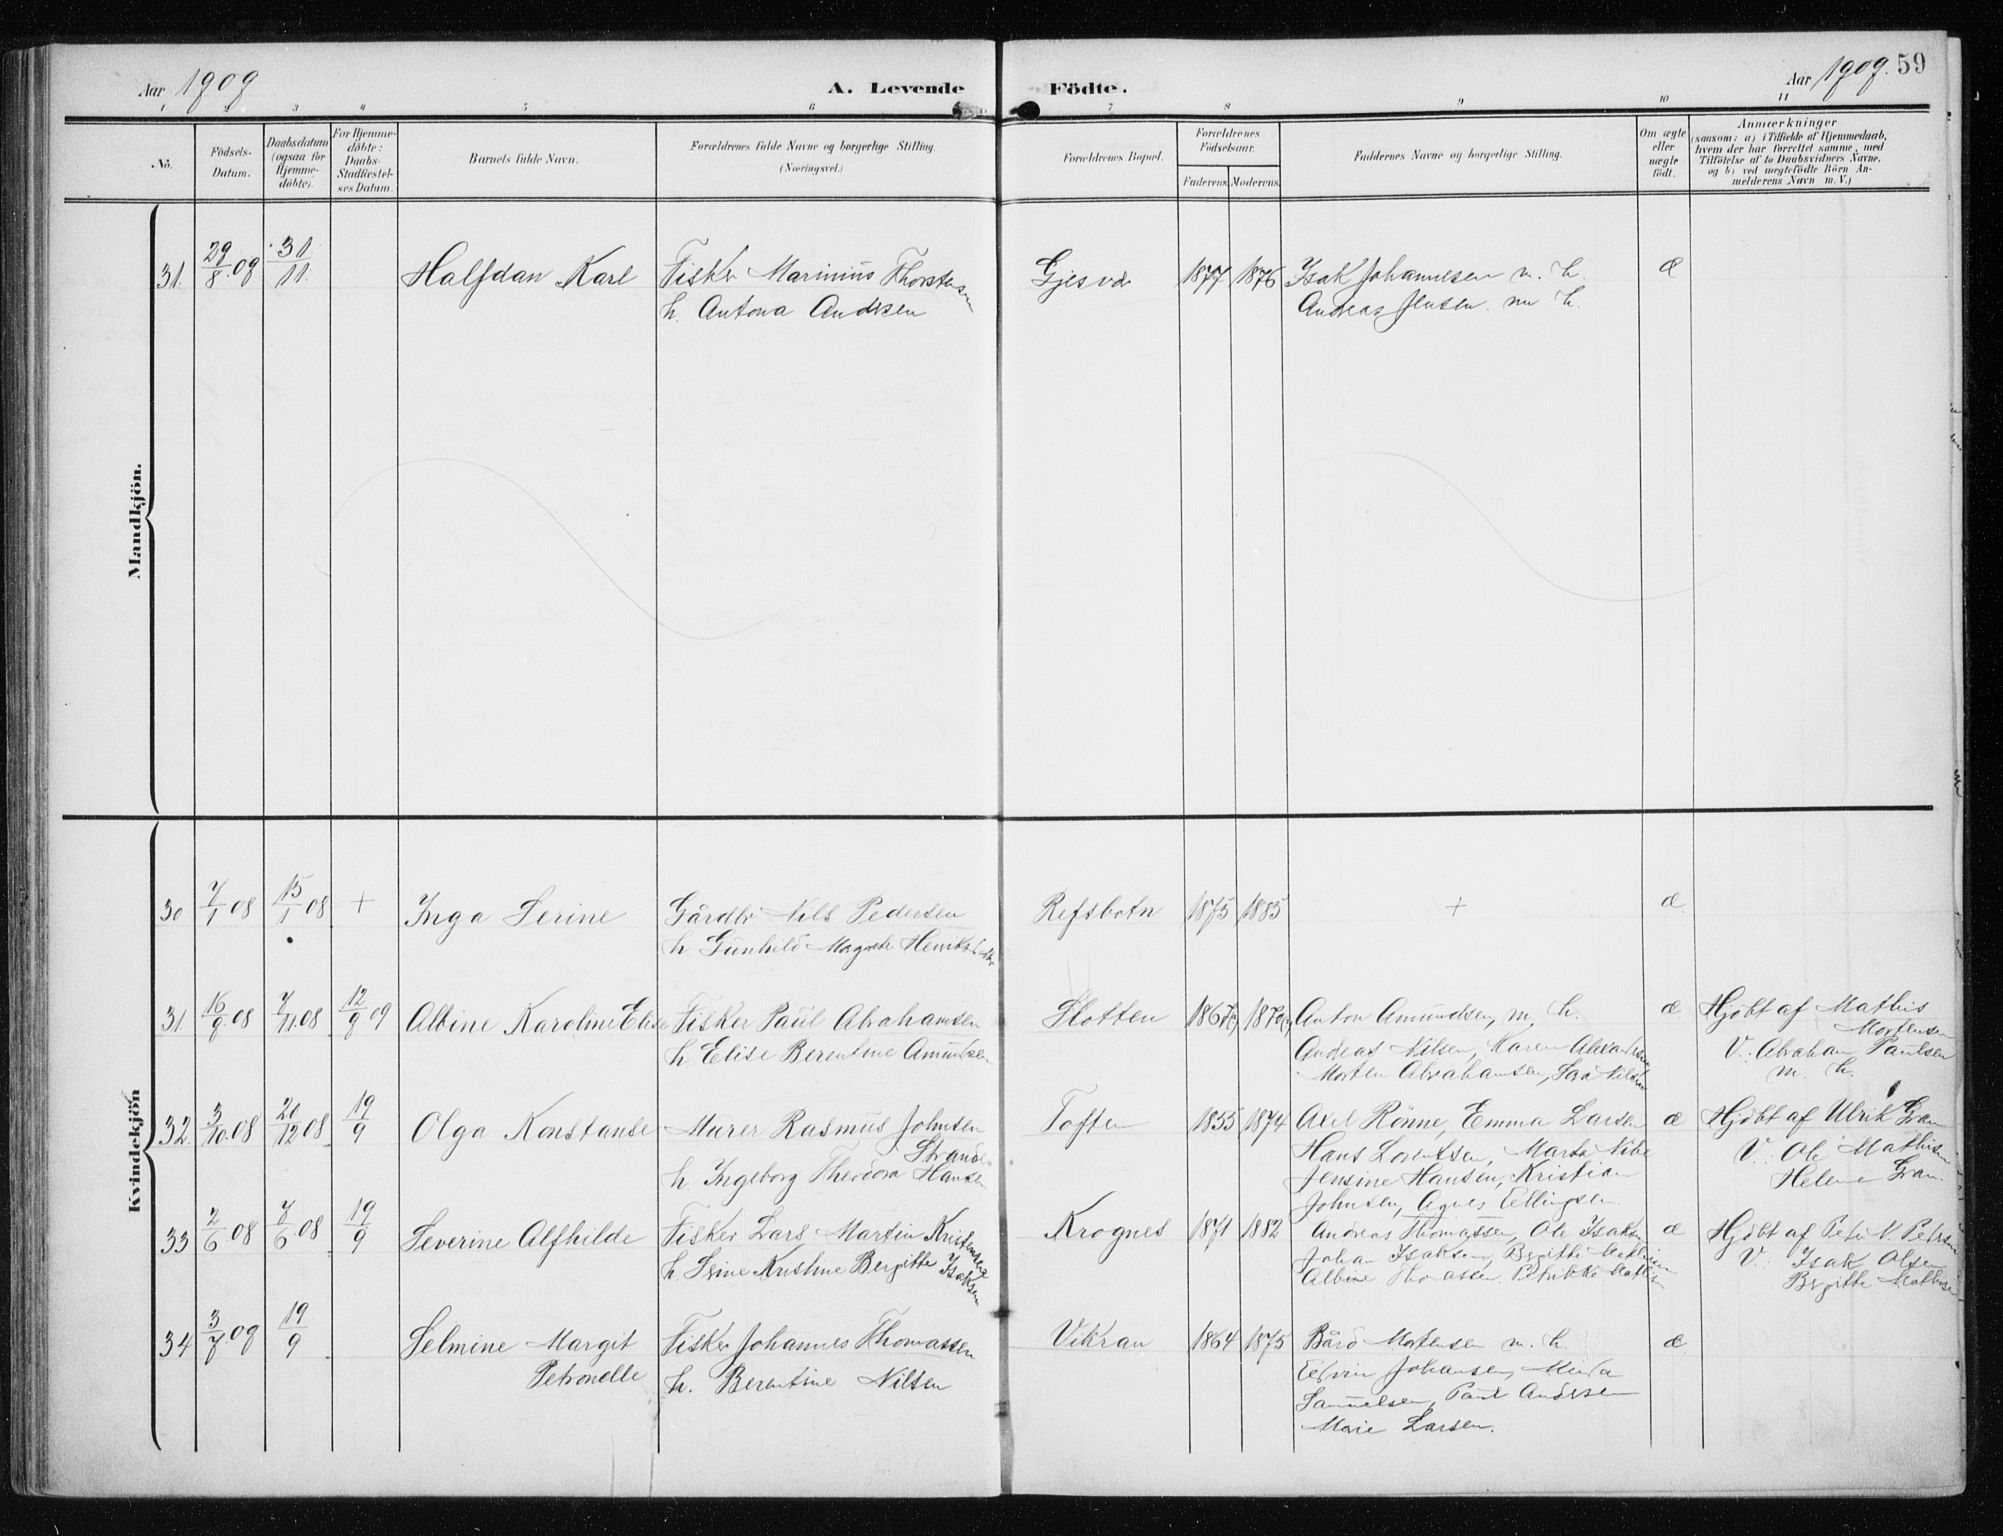 Aar 1909
A. Levende
Födte.
Aar 1909. 59
1 2 3 4 5 6 7 8 9 10 11
No.
Födsels-
Datum.
Daabsdatum
(ogsaa for
Hjemme-
döbte).
For Hjemme-
döbte:
Daabs-
Stadfæstel-
ses Datum.
Barnets fulde Navn.
Forældrenes fulde Navne og borgerlige Stilling.
(Næringsvei.)
Forældrenes Bopæl.
Forældrenes
Födselsaar.
Faderens. Moderens.
Faddernes Navne og borgerlige Stilling.
Om ægte
eller
uægte
födt.
Anmærkninger
(saasom: a) i Tilfælde af Hjemmedaab,
hvem der har forrettet samme, med
Tilföielse af to Daabsvidners Navne.
og b) ved uægtefödte Börn An-
melderens Navn m. V.)
Mandkjön.
31. 29/8 09 31/11 Halfdan Karl Fisker Marinius Thorstensen Gjesvær 1877 1876 Isak Johannesen m. h. æ
h. Antona Andrsen Andreas Jensen m h.
Kvindekjön
30 7/1 08 15/1 08 + Inga Serine Gårdbr Nils Pedersen Refsbotn 1875 1885 + æ
h. Gunhild Magrete
31. 16/9 08 7/11 08 12/9 09 Albine Karoline Elise Fisker Paul Abrahamsen Slotten Anton Amundsen, m. h. æ Hjdbt af Mathis
Mortensen
h. Elise Berentine Amundsen Andreas Nilsen, Karen V. Abraham Paulsen
Morten Abrahamsen, m. h.
32. 3/10 08 20/12 08 19/9 Olga Konstanse Murer Rasmus Johnsen Toften 1855 1874 Axel Rönne, Emma Larsen æ Hjdbt af Ulrik Gran
Strand
h. Ingeborg Theodora Hansen Hans Lorentsen, Marta V. Ole Mathisen
Jensine Hansen, Kristian Helene Gran.
Johnsen, Agnes Ellingsen.
33 2/6 08 7/6 08 19/9 Severine Alfhilde Fisker Lars Martin Krognes 1871 1882 Andreas Thomassen, Ole Isaksen æ Hjdbt af Peder N. Petersen
h. Kristine Bergitte Isaksen Johan Isaksen, Brgitte V. Isak Olsen
Albine Thomassen, Brgitte Mathisen
34 3/7 09 19/9 Selmine Margit Fisker Johannes Thomassen Vikran 1864 1875 Bård Mortensen m. h. æ
Petronelle h. Berentine Nilsen Edvin Johansen,
Samuelsen, Paul Andersen
Marie Larsen.